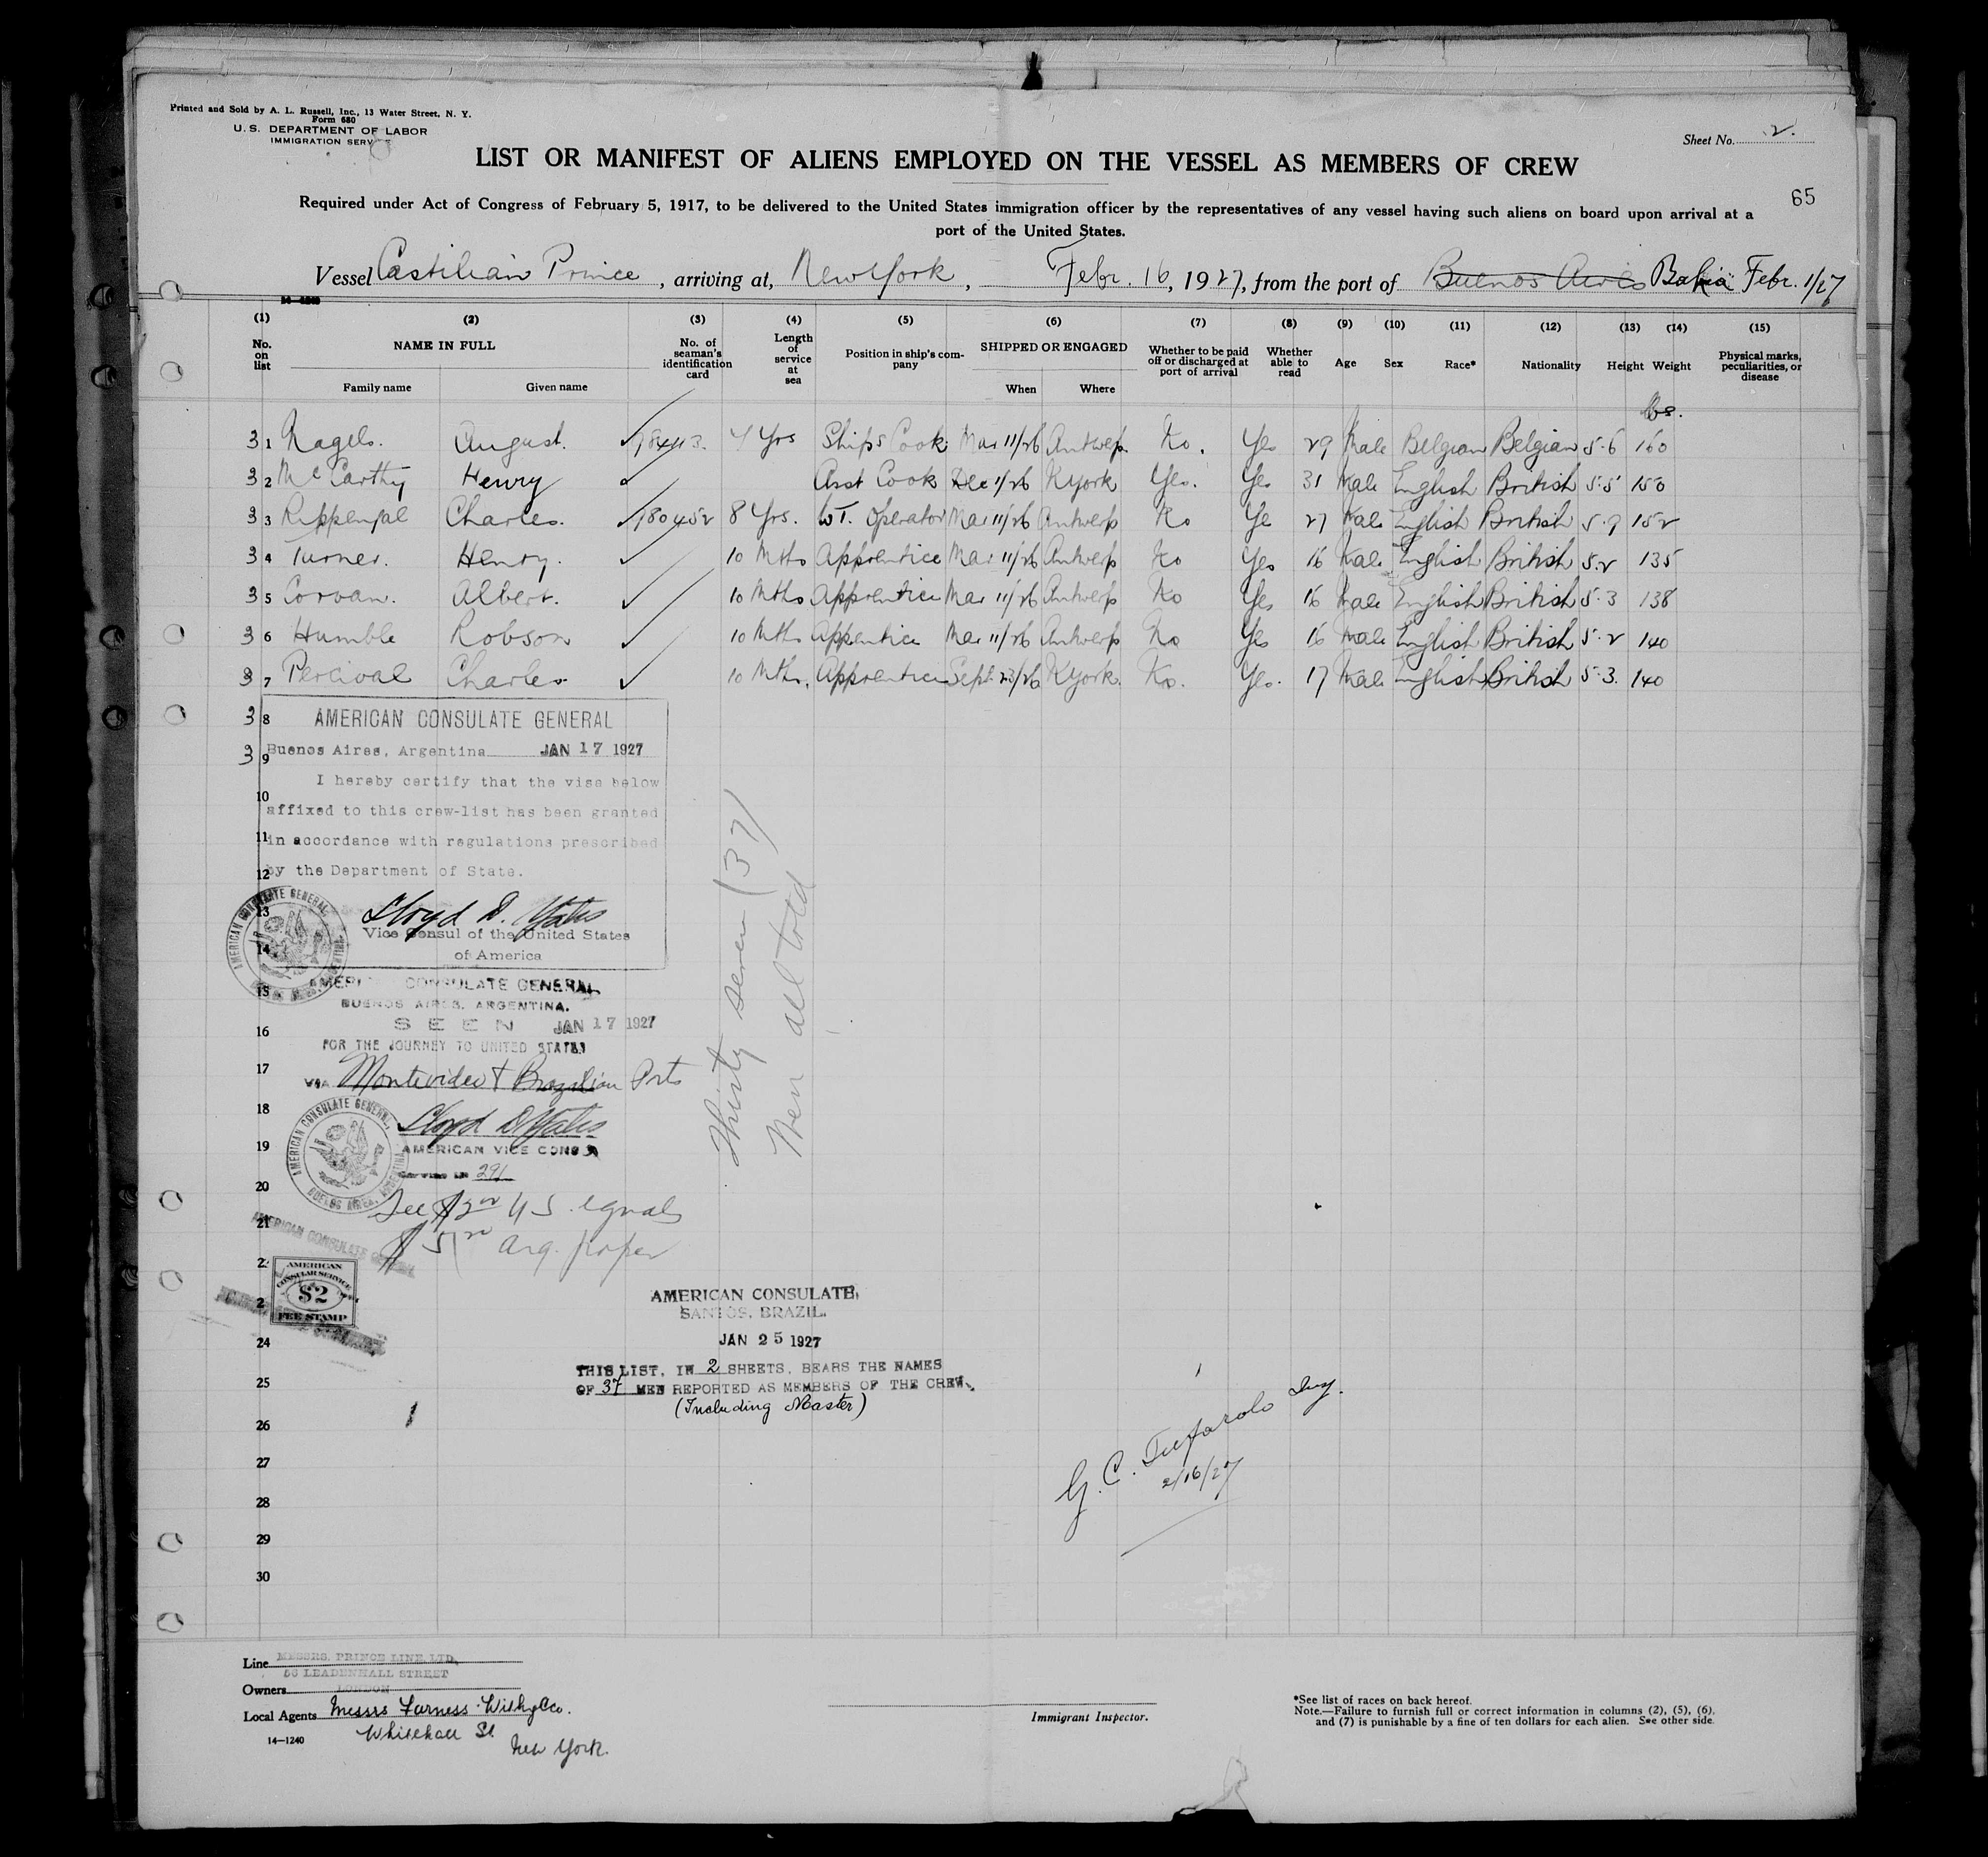 Printed and Sold by A. L. Russell, Inc., 13 Water Street, N. Y.
Form 680
U. S. DEPARTMENT OF LABOR
IMMIGRATION SERVICE
Sheet No. 2.
LIST OR MANIFEST OF ALIENS EMPLOYED ON THE VESSEL AS MEMBERS OF CREW
65
Required under Act of Congress of February 5, 1917, to be delivered to the United States immigration officer by the representatives of any vessel having such aliens on board upon arrival at a
port of the United States.
Vessel Castilian Prince, arriving at, New York, Febr. 16, 1927, from the port of Buenos Aires Bahia Febr. 1/27
(1) (2) (3) (4) (5) (6) (7) (8) (9) (10) (11) (12) (13) (14) (15)
No. on list NAME IN FULL Family name Given name No. of seaman's identification card Length of service at sea Position in ship's company SHIPPED OR ENGAGED When Where Whether to be paid off or discharged at port of arrival Whether able to read Age Sex Race* Nationality Height Weight Physical marks, peculiarities, or disease
lbs.
31 Nagels. August. 4 Yrs Ships Cook Mar 11/26 Antwerp. No. Yes 29 Male Belgian Belgian 5.6 160
32 McCarthy Henry Asst Cook Dec 1/26 N York Yes. Yes 31 Male English British 5.5 150
33 Charles. 180452 8 Yrs. W.T. Operator Mar 11/26 Antwerp No Ye 27 Male English British 5.9 152
34 Turner. Henry. 10 Mths Apprentice Mar 11/26 Antwerp No Yes 16 Male English British 5.2 135
35 Corvan. Albert. 10 Mths Apprentice Mar 11/26 Antwerp No Yes 16 Male English British 5.3 138
36 Humble Robson 10 Mths Apprentice Mar 11/26 Antwerp No Yes 16 Male English British 5.2 140
37 Percival Charles 10 Mths. Apprentice Sept 23/26 N York. No. Yes. 17 Male English British 5.3. 140
38
39
AMERICAN CONSULATE GENERAL
Buenos Aires, Argentina JAN 17 1927
I hereby certify that the visa below
affixed to this crew-list has been granted
in accordance with regulations prescribed
by the Department of State.
Lloyd D. Yates
Vice Consul of the United States
of America
AMERICAN CONSULATE GENERAL
BUENOS AIRES, ARGENTINA.
SEEN JAN 17 1927
FOR THE JOURNEY TO UNITED STATES
VIA Montevideo & Brazilian Ports
Lloyd D Yates
AMERICAN VICE CONSUL
Service No 291
AMERICAN CONSULATE GENERAL, BUENOS AIRES, ARGENTINA
Fee $2 00 US equals
AMERICAN CONSULATE GENERAL
AMERICAN
CONSULAR SERVICE
$2
FEE STAMP
Thirty seven (37)
Men all told
10
11
12
13
14
15
16
17
18
19
20
21
22
2
24
25
26
27
28
29
30
AMERICAN CONSULATE,
SANTOS, BRAZIL.
JAN 25 1927
THIS LIST, IN 2 SHEETS, BEARS THE NAMES
OF 37 MEN REPORTED AS MEMBERS OF THE CREW.
(Including Master)
G. C.
2/16/27
Line MESSRS. PRINCE LINE LTD.
56 LEADENHALL STREET
Owners LONDON
Local Agents Messrs Furness Withy & Co.
Whitehall St.
New York.
14—1240
Immigrant Inspector.
*See list of races on back hereof.
Note.—Failure to furnish full or correct information in columns (2), (5), (6),
and (7) is punishable by a fine of ten dollars for each alien. See other side.